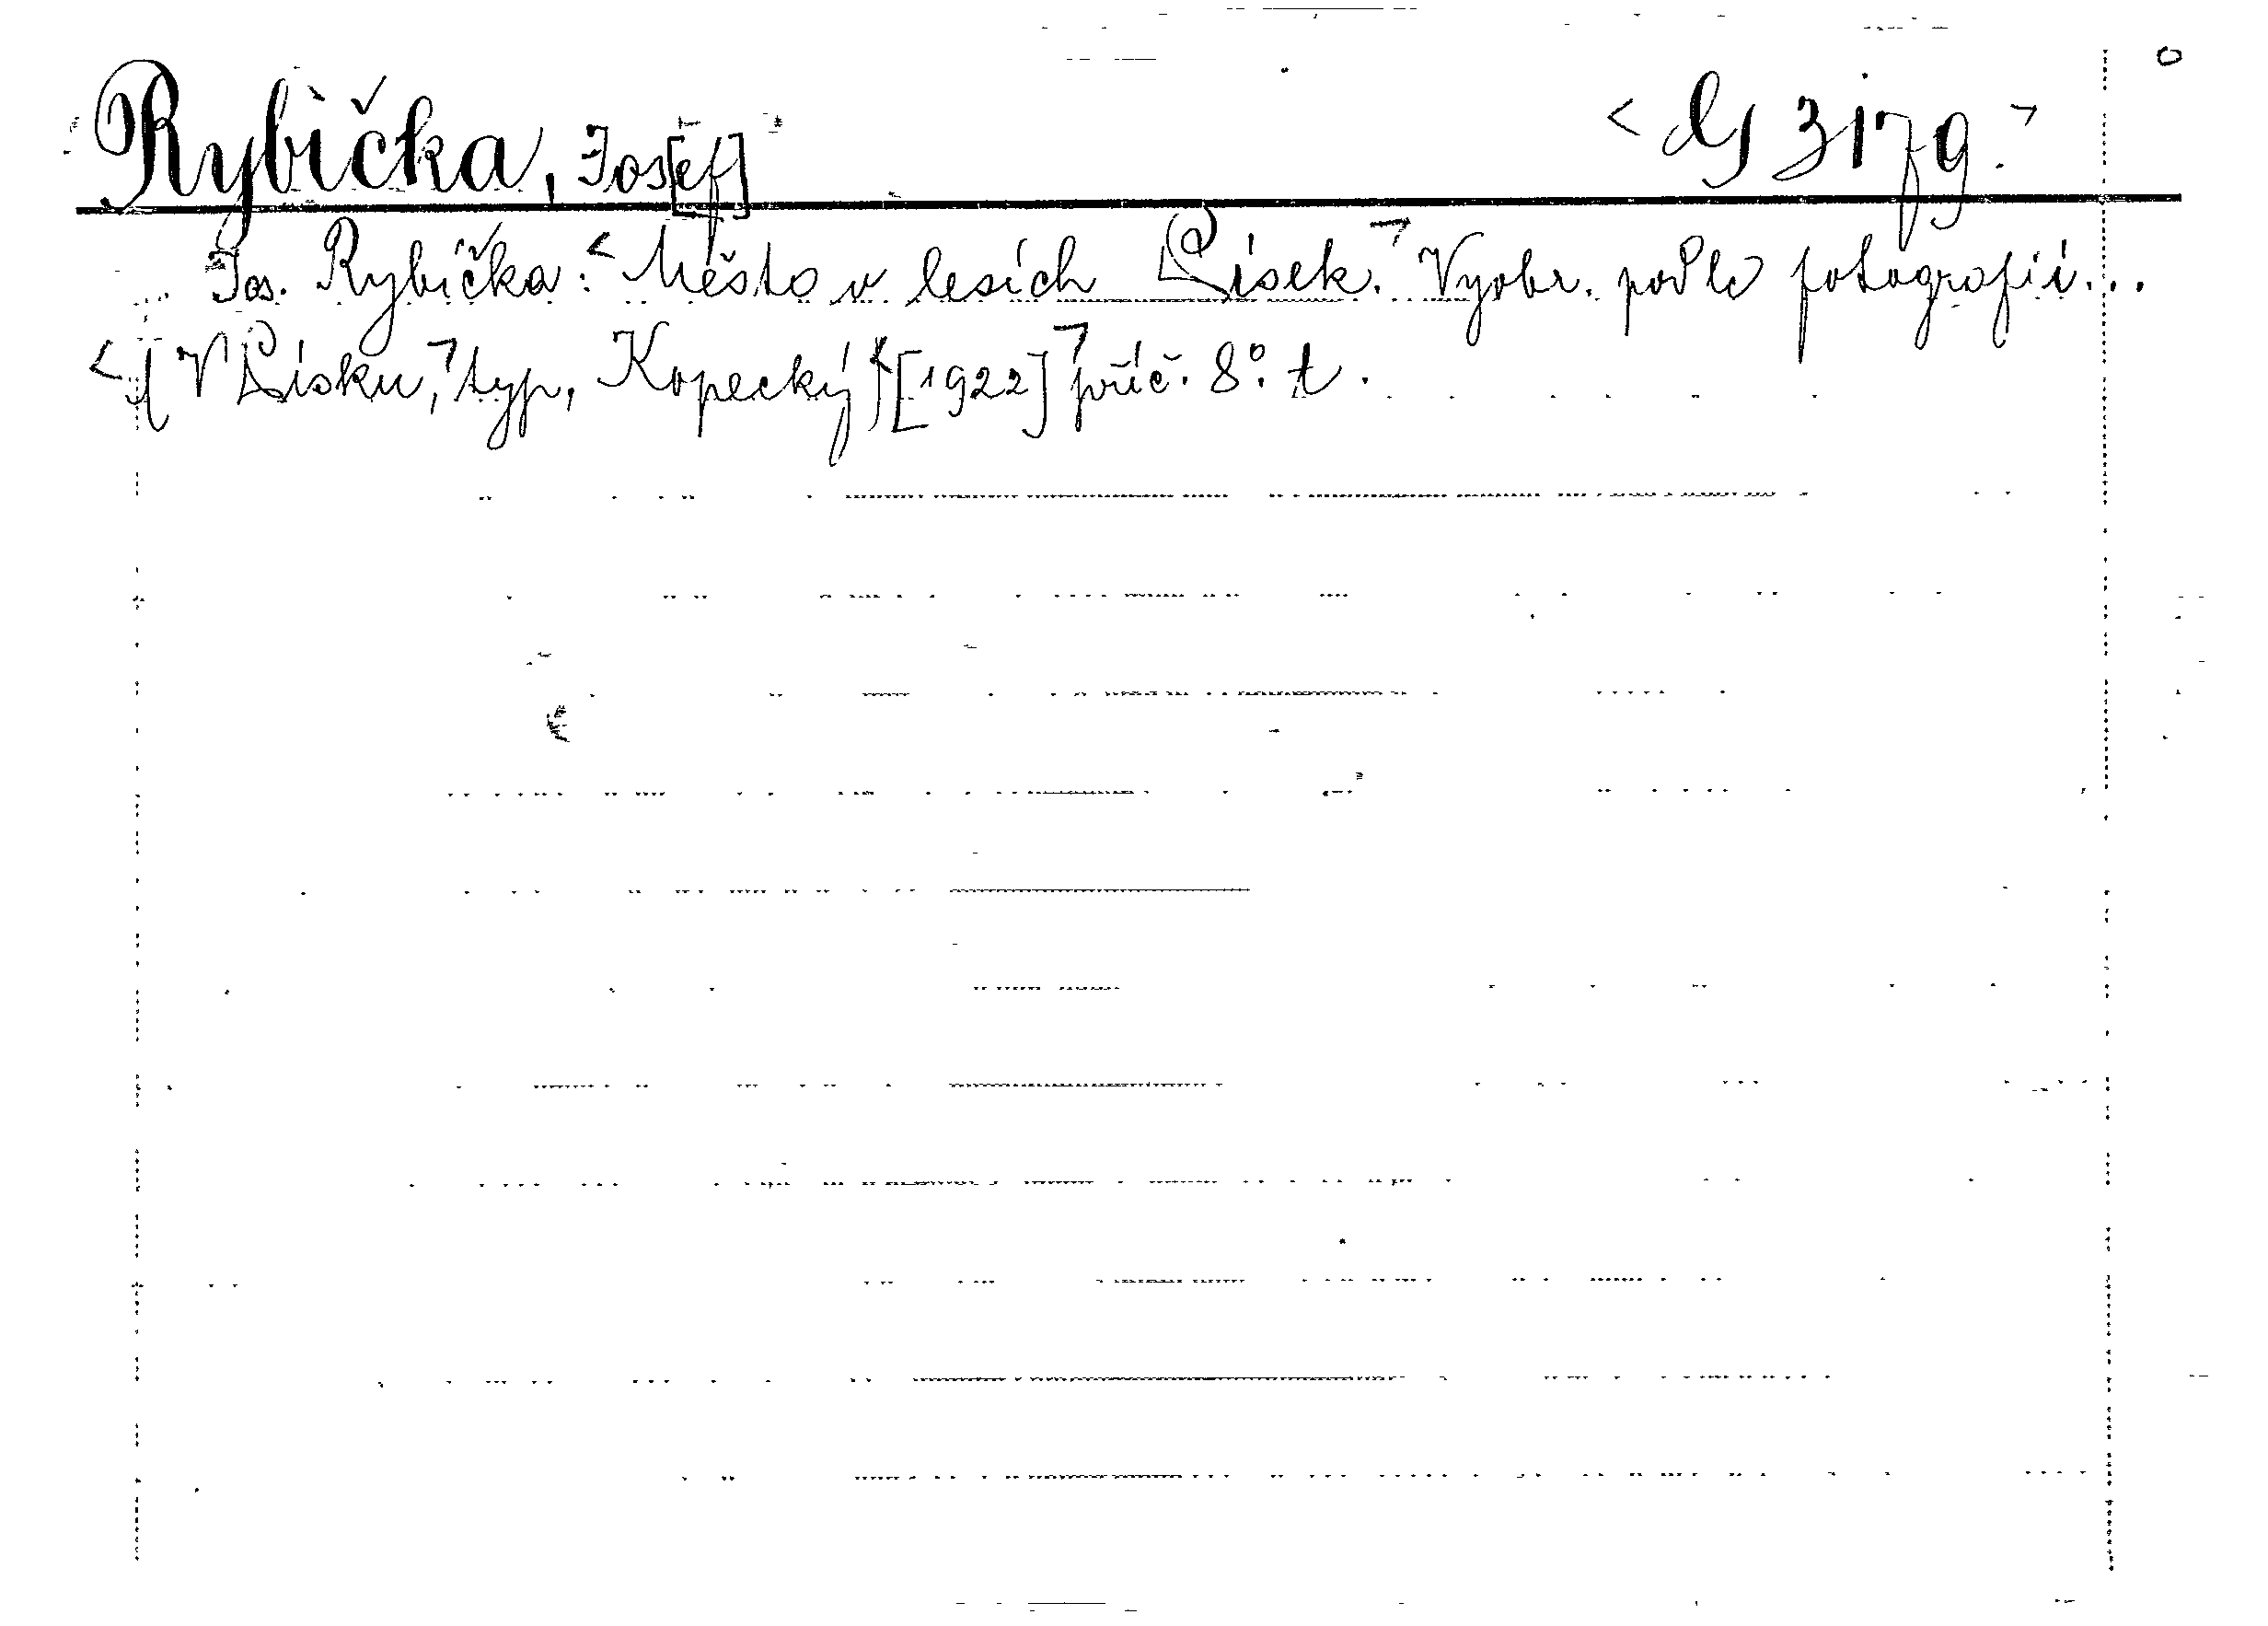 Rybička, Jos[ef] <G 3179.>
Jos. Rybička: <Město v lesích Písek.> Vyobr. podle fotografií...
<(V Písku,> typ. Kopecký) <[1922]> příč. 8°. t.